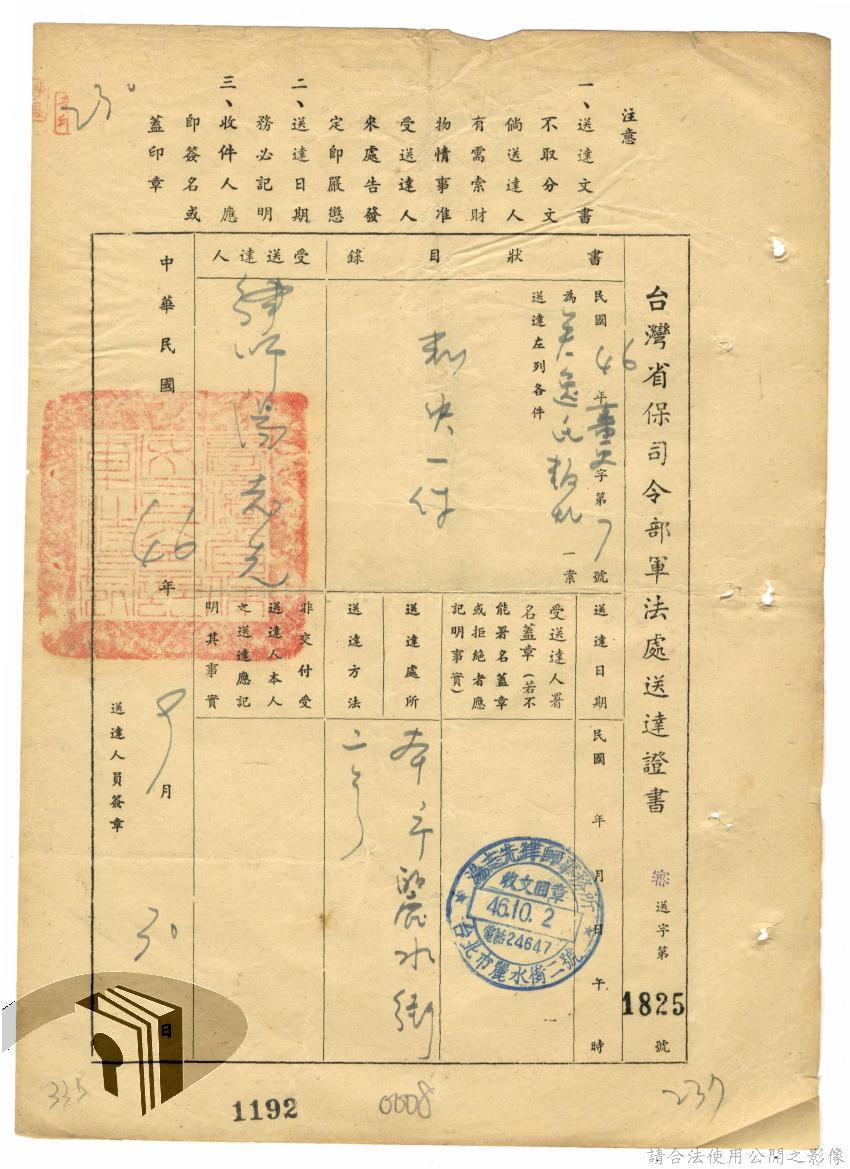 注意
一、送達文書
不取分文
倘送達人
有需索財
物情事准
受送達人
來處告發
定即嚴懲
二、送達日期
務必記明
三、收件人應
即簽名或
蓋印章
台灣省保司令部軍法處送達證書
送字第
1825
號
書狀目錄
民國46年字第7號
為吳逸民叛亂一案
送達左列各件
判決一件
受送達人
律師湯志先
送達日期
民國 年 月 日 午 時
受送達人署
名蓋章(若不
能署名蓋章
或拒絕者應
記明事實)
湯志先律師事務所
收文回章
46.10.2
電話24647
台北市麗水街二號
送達處所
本市麗水街
二號
送達方法
非交付受
送達人本人
之送達應記
明其事實
中華民國46年9月30日
送達人員簽章
230
335
1192
0008
237
請合法使用公開之影像